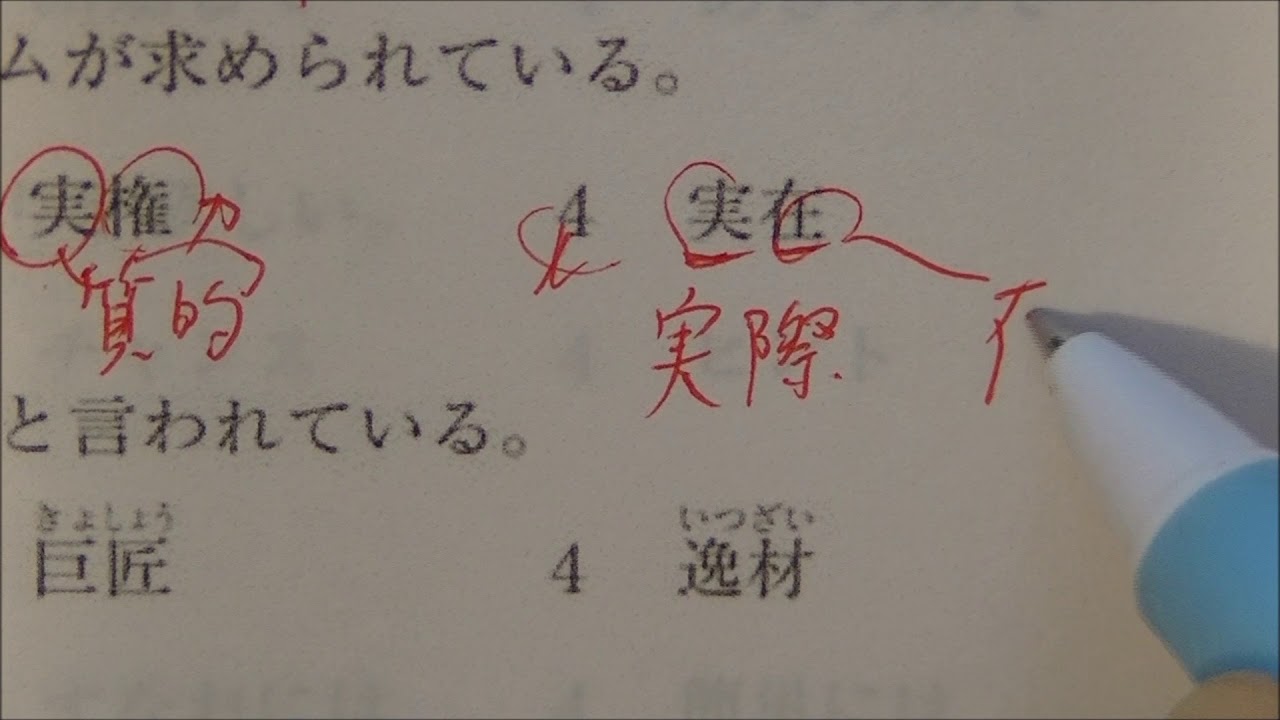 ムが求められている。
実権 4 実在
質的 実際
と言われている。
きょしょう いつざい
巨匠 4 逸材